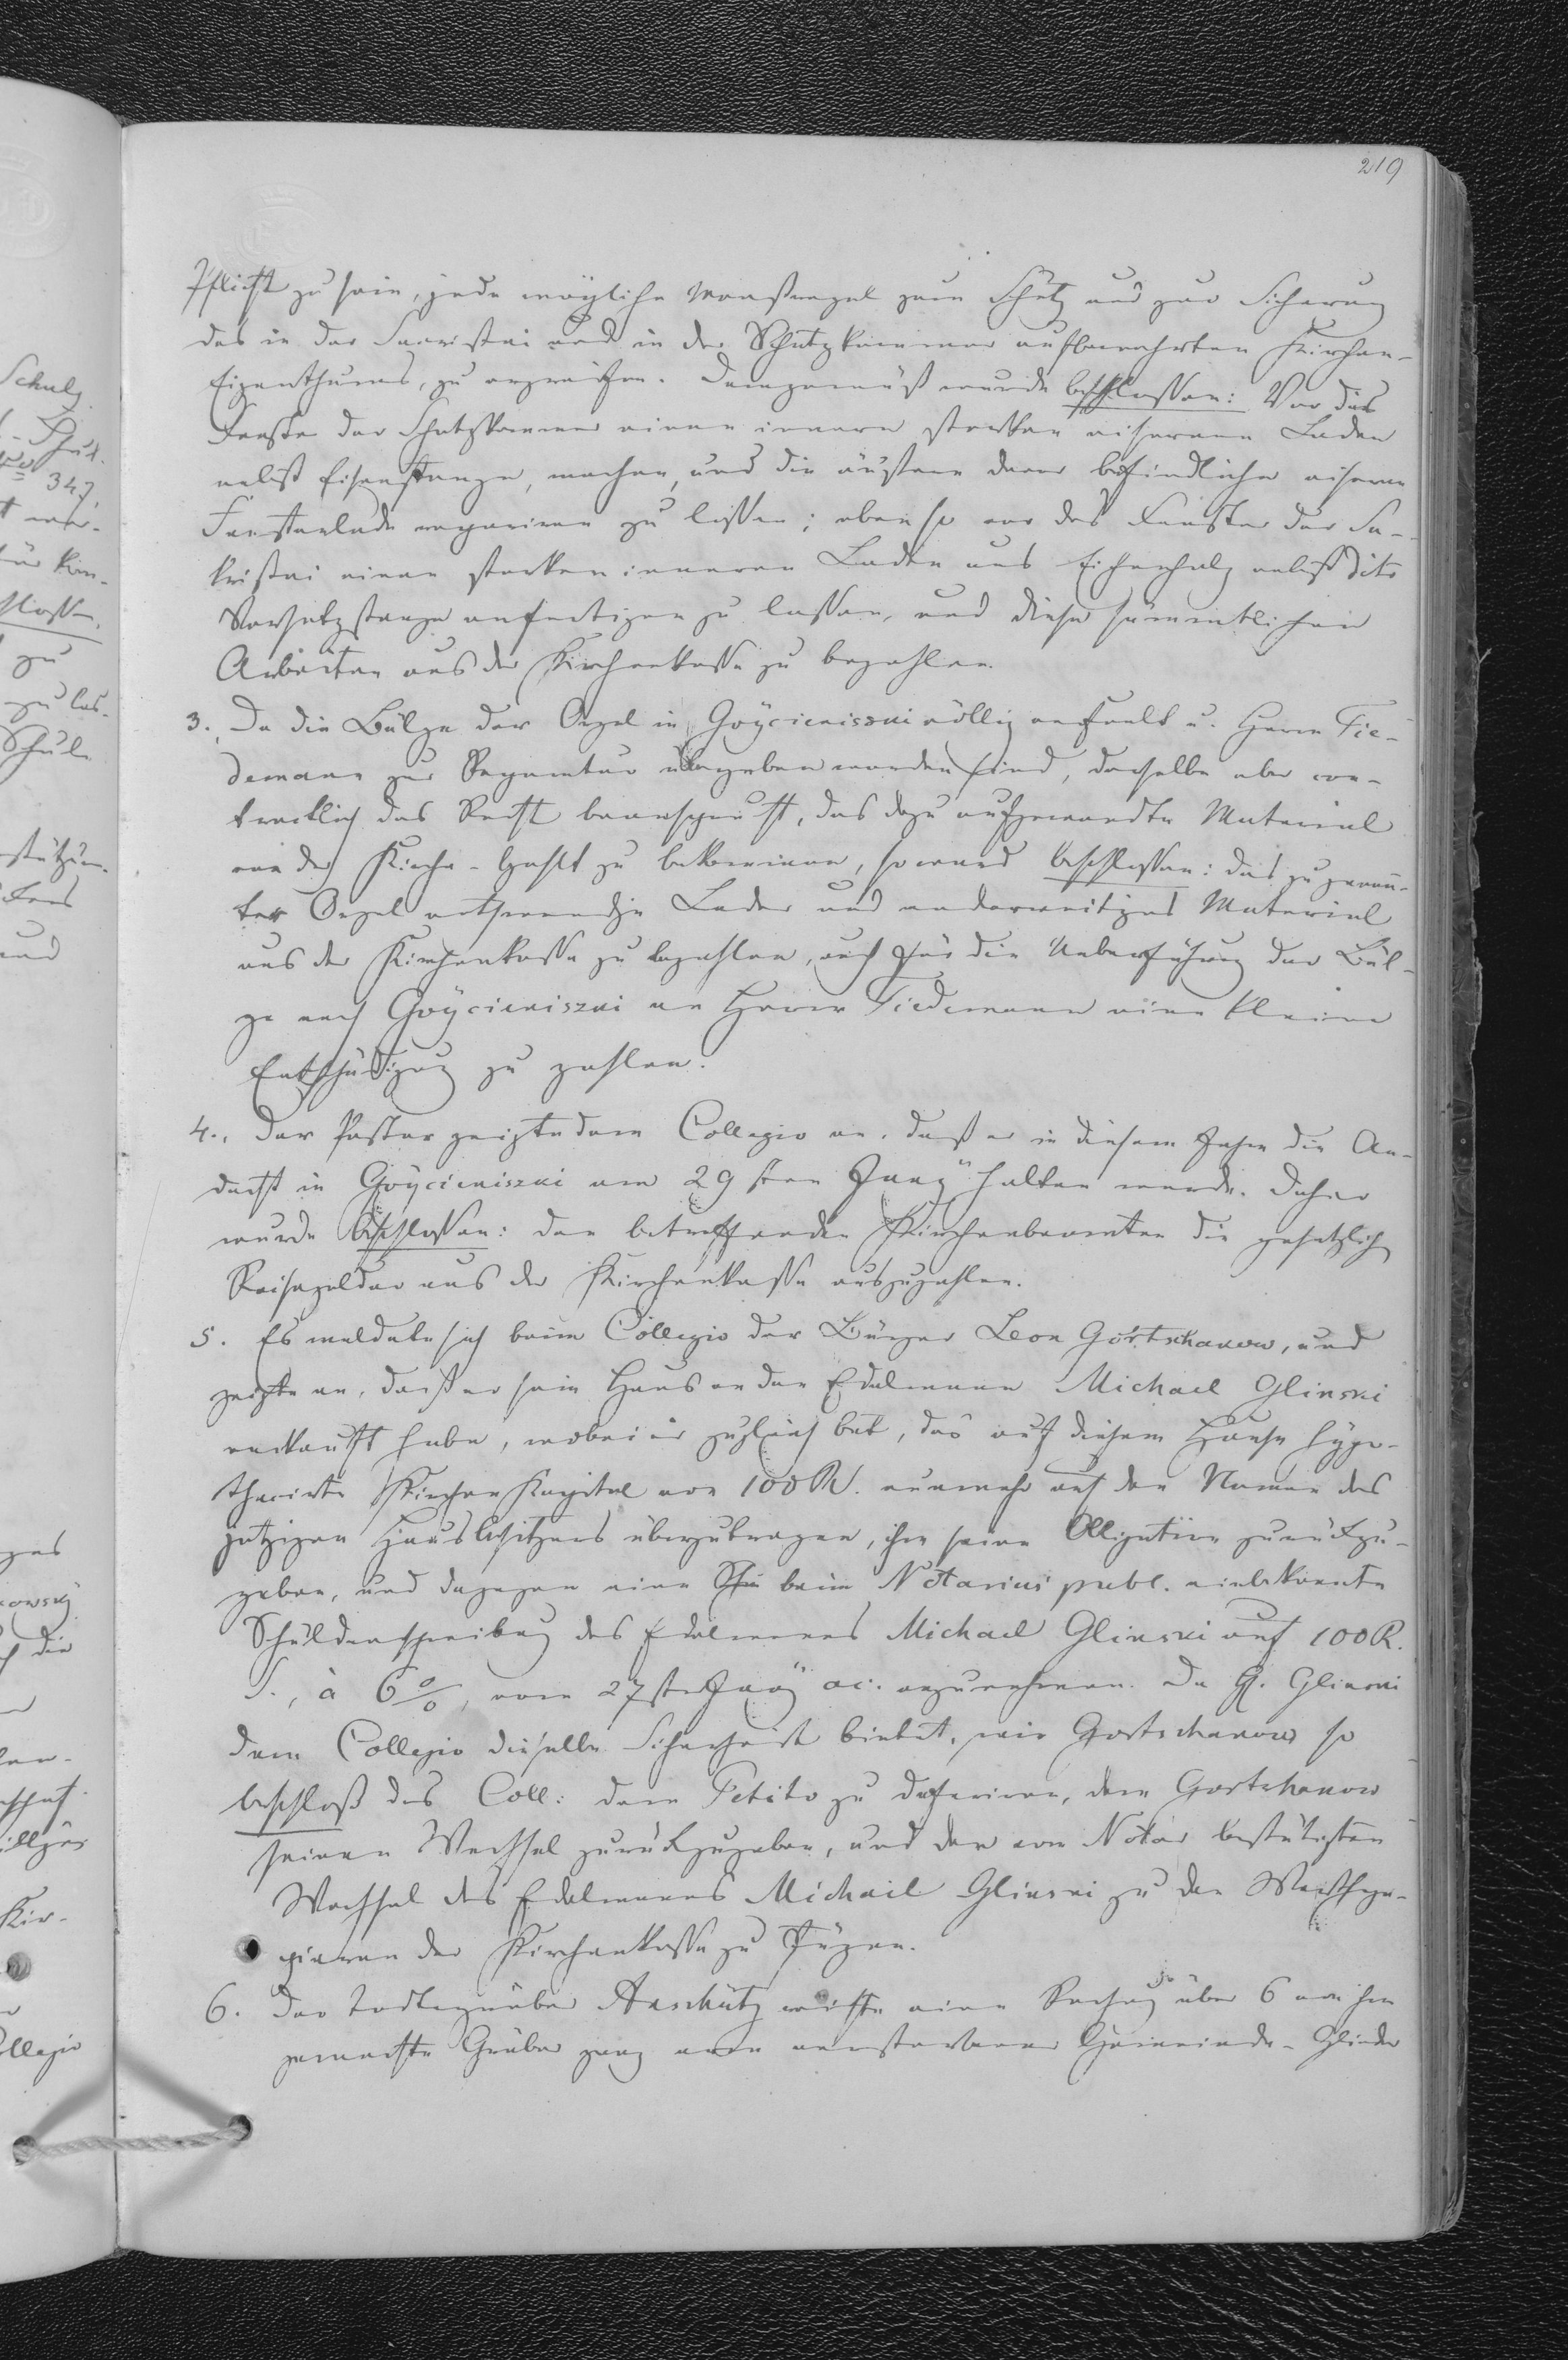 219
Pflicht zu sein, jede mögliche Maaßregel zum Schutz und zur Sicherung
des in der Sacristei und in der Schatzkammer aufbewahrten Kirchen-
Eigenthums, zu ergreifen. Demgemäß wurde beschlossen: Vor das
Fenster der Schatzkammer einen innern starken eisernen Laden
nebst Eisenstange, machen, und die äußere davor befindliche eiserne
Fensterlade repariren zu lassen; eben so vor das Fenster der Sa-
kristei einen starken inneren Laden aus Eichenholz nebst dito
Vorsatzstange anfertigen zu lassen, und diese sämmtlichen
Arbeiten aus der Kirchenkasse zu bezahlen.
3. Da die Bälge der Orgel in Goÿcieniszki völlig verfault u. Herrn Tie-
demann zur Reparatur übergeben worden sind, derselbe aber con-
tractlich das Recht beansprucht, das dazu aufgewandte Material
von der Kirche bezahlt zu bekommen, so ward beschlossen: das zu genann-
ter Orgel nothwendige Leder und anderweitiges Material
aus der Kirchenkasse zu bezahlen, auch für die Ueberführung der Bäl-
ge nach Goÿcieniszki an Herrn Tiedemann eine kleine
Entschädigung zu zahlen.
4., Der Pastor zeigte dem Collegio an, daß er in diesem Jahre die An-
dacht in Goÿcieniszki am 29sten Juny halten werde. Daher
wurde beschlossen: den betreffenden Kirchenbeamten die gesetzlich
Reisegelder aus der Kirchenkasse auszuzahlen.
5. Es meldete sich beim Collegio der Bürger Leon Gortschanow, und
zeigte an, daß er sein Haus an den Edelmann Michael Glinski
verkauft habe, wobei er zugleich bat, das auf diesem Hause hypo-
thecirte Kirchen Kapital von 100 R. nunmehr auf den Namen des
jetzigen Hausbesitzers überzutragen, ihm seine Obligation zurückzu-
geben, und dagegen eine beim Notarius publ. einbekannte
Schuldverschreibung des Edelmanns Michael Glinski auf 100 R.
S., à 6%, vom 27ste Juny ac: anzunehmen. Da H. Glinski
dem Collegio dieselbe Sicherheit bietet, wie Gortschanow so
beschloß das Coll: dem Petito zu deferiren, dem Gortschanow
seinen Wechsel zurückzugeben, und den vom Notar bestätigten
Wechsel des Edelmanns Michael Glinski zu den Werthpa-
pieren der Kirchenkasse zu fügen.
6. Der Todtengräber Anschütz reichte eine Rechnung über 6 von ihm
gemachte Gräber ganz armer verstorbener Gemeinde-Glieder